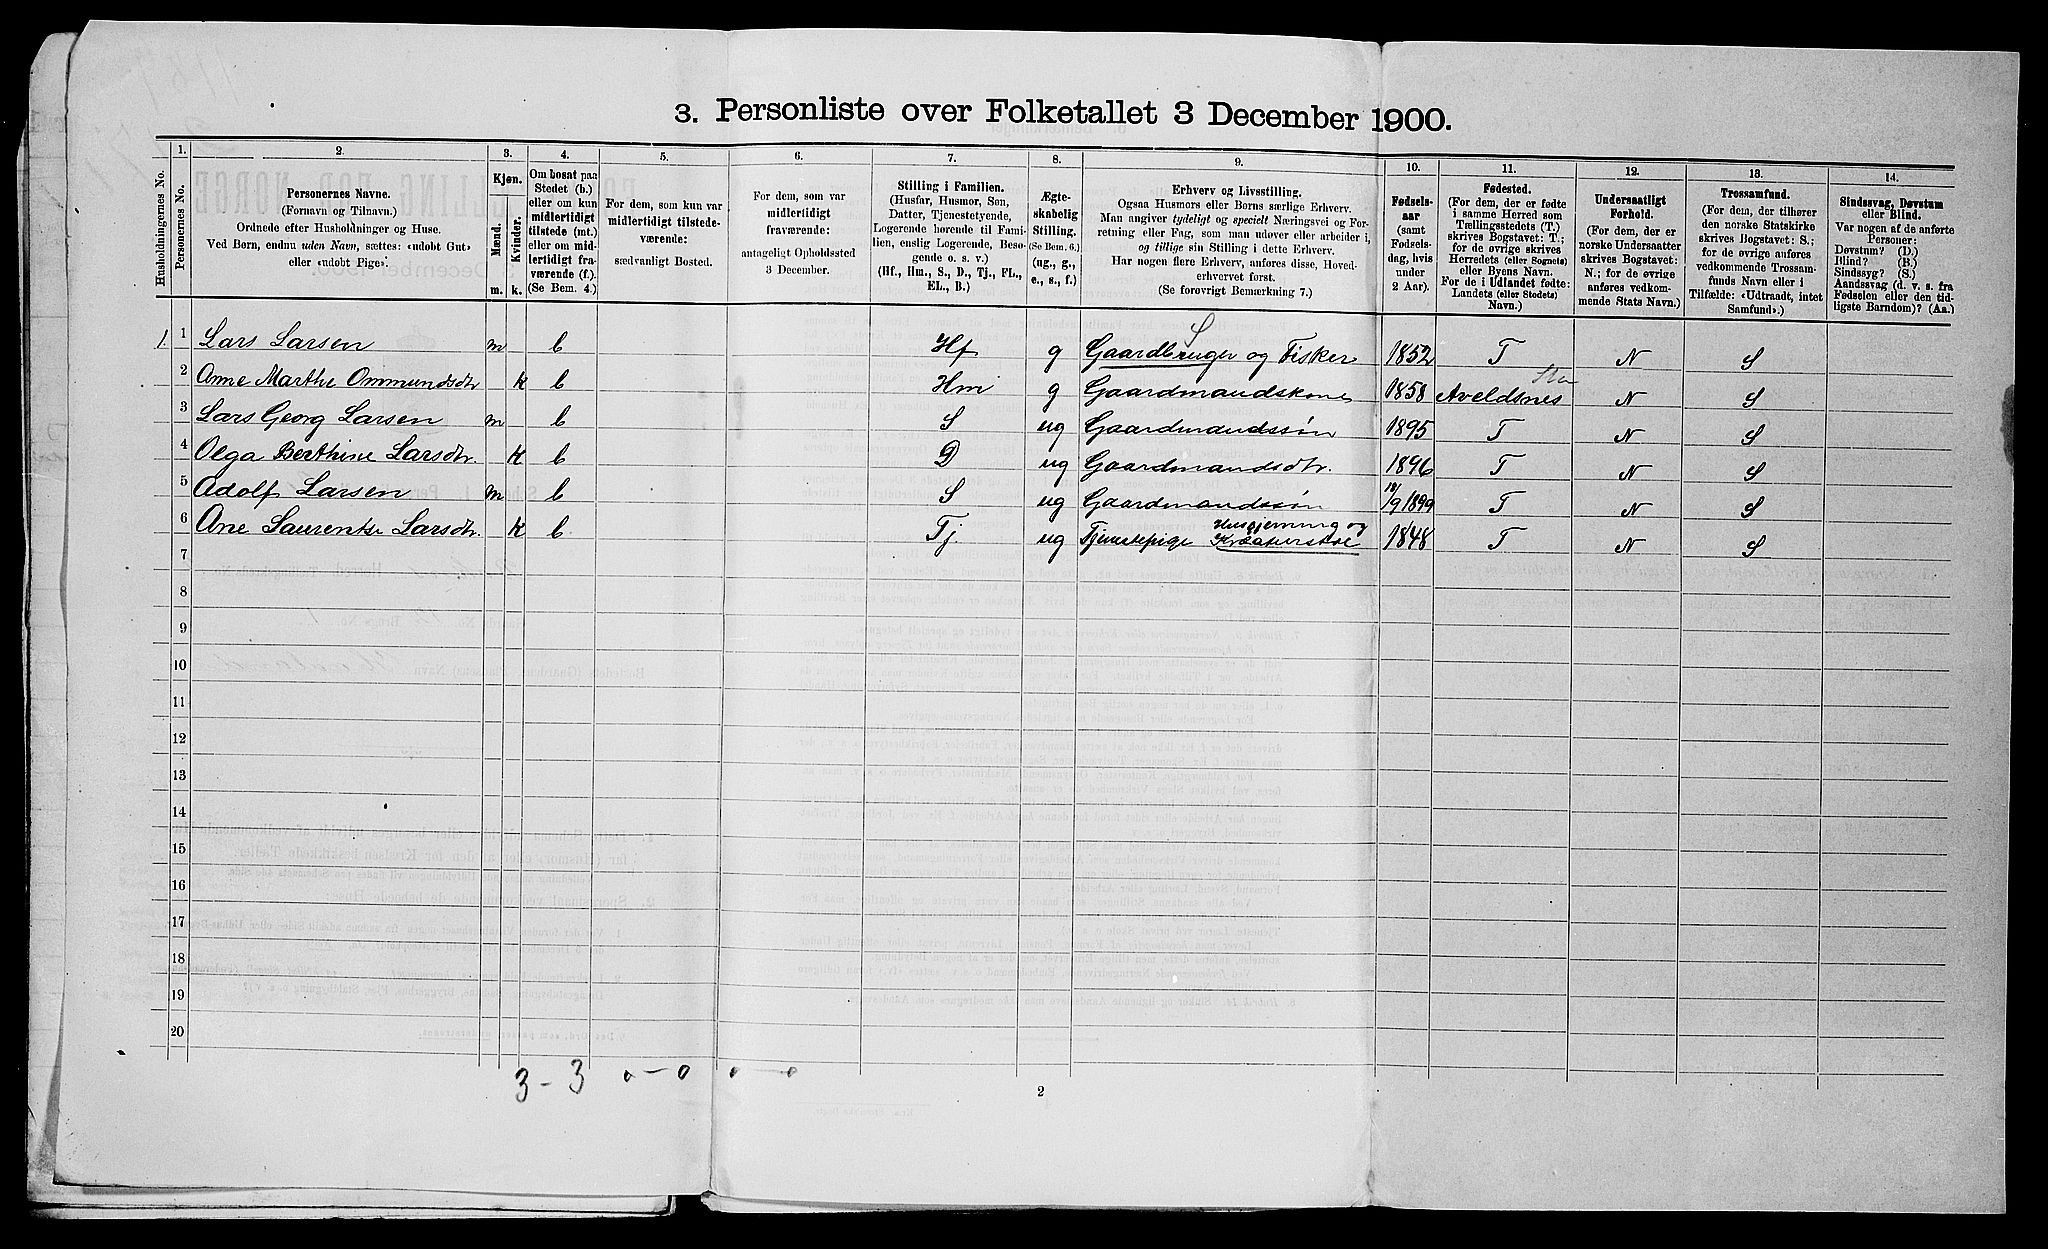 3. Personliste over Folketallet 3 December 1900.
1. 2. 3. 4. 5. 6. 7. 8. 9. 10. 11. 12. 13. 14.
Husholdningernes No.
Personernes No.
Personernes Navne.
(Fornavn og Tilnavn.)
Ordnede efter Husholdninger og Huse.
Ved Børn, endnu uden Navn, sættes: «udøbt Gut»
eller «udøbt Pige».
Kjøn.
Mænd.
Kvinder.
m. k.
Om bosat paa
Stedet (b.)
eller om kun
midlertidigt
tilstede (mt.)
eller om mid-
lertidigt fra-
værende (f.).
(Se Bem. 4.)
For dem, som kun var
midlertidigt tilstede-
værende:
sædvanligt Bosted.
For dem, som var
midlertidigt
fraværende:
antageligt Opholdssted
3 December.
Stilling i Familien.
(Husfar, Husmor, Søn,
Datter, Tjenestetyende,
Logerende hørende til Fami-
lien, enslig Logerende, Besø-
gende o. s. v.)
(Hf., Hm., S., D., Tj., FL.,
EL., B.)
Ægte-
skabelig
Stilling.
(Se Bem. 6.)
(ug., g.,
e., s., f.)
Erhverv og Livsstilling.
Ogsaa Husmors eller Børns særlige Erhverv.
Man angiver tydeligt og specielt Næringsvei og For-
retning eller Fag, som man udøver eller arbeider i,
og tillige sin Stilling i dette Erhverv.
Har nogen flere Erhverv, anføres disse, Hoved-
erhvervet først.
(Se forøvrigt Bemærkning 7.)
Fødsels-
aar
(samt
Fødsels-
dag, hvis
under
2 Aar).
Fødested.
(For dem, der er fødte
i samme Herred som
Tællingsstedets (T.)
skrives Bogstavet: T.;
for de øvrige skrives
Herredets (eller Sognets)
eller Byens Navn.
For de i Udlandet fødte:
Landets (eller Stedets)
Navn.)
Undersaatligt
Forhold.
(For dem, der er
norske Undersaatter
skrives Bogstavet:
N.; for de øvrige
anføres vedkom-
mende Stats Navn.)
Trossamfund.
(For dem, der tilhører
den norske Statskirke
skrives Bogstavet: S.;
for de øvrige anføres
vedkommende Trossam-
funds Navn eller i
Tilfælde: «Udtraadt, intet
Samfund».)
Sindssvag, Døvstum
eller Blind.
Var nogen af de anførte
Personer:
Døvstum? (D.)
Blind? (B.)
Sindssyg? (S.)
Aandssvag (d. v. s. fra
Fødselen eller den tid-
ligste Barndom)? (Aa.)
S
1. 1 Lars Larsen m b Hf g Gaardbruger og Fisker 1852 T N S
2 Ane Marthe Ommundsdtr k b Hm g Gaardmandskone 1858 Aveldsnes N S
3 Lars Georg Larsen m b S ug Gaardmandssøn 1895 T N S
4 Olga Berthine Larsdtr. k b D ug Gaardmandsdtr. 1896 T N S
5 Adolf Larsen m b S ug Gaardmandssøn 18/9 1899 T N S
6 Ane Laurentse Larsdtr. k b Tj. ug Tjenestepige Husgjerning og Kreaturstel 1848 T N S
7
8
9
10
11
12
13
14
15
16
17
18
19
20
3 - 3 0 - 0 0 - 0
2